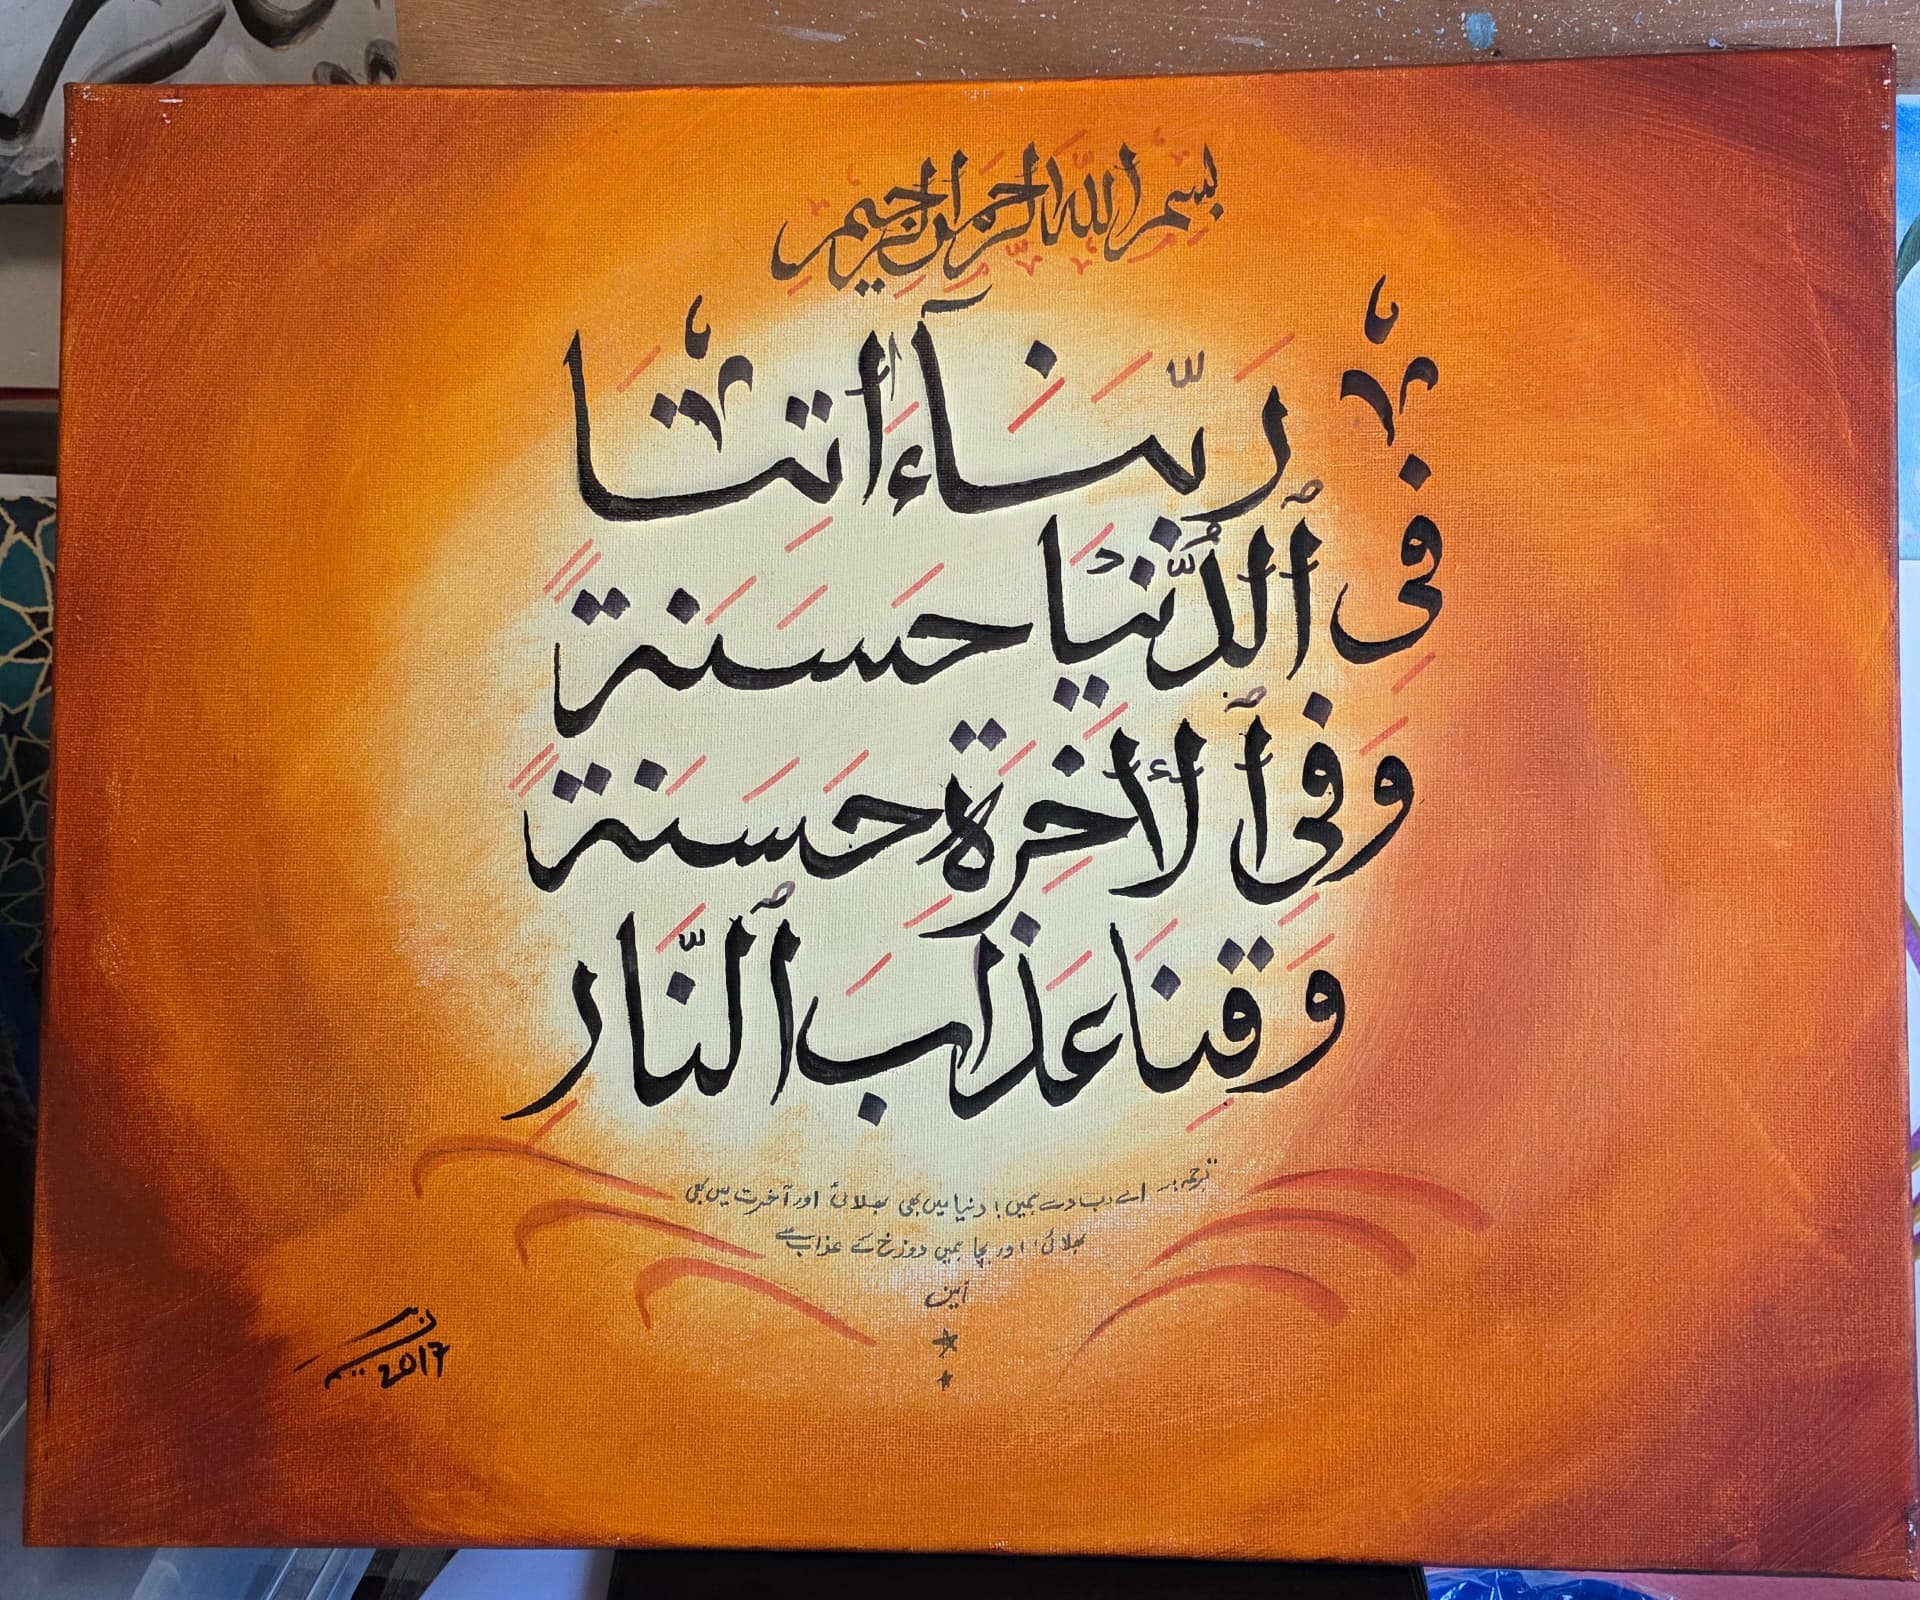 بِسْمِ اللّٰهِ الرَّحْمٰنِ الرَّحِيمِ
رَبَّنَآ ءَاتِنَا
فِى ٱلدُّنْيَا حَسَنَةً
وَفِى ٱلْأَخِرَةِ حَسَنَةً
وَقِنَا عَذَابَ ٱلنَّارِ
ترجمہ:۔ اے رب! دے ہمیں! دنیا میں بھی بھلائی اور آخرت میں بھی
بھلائی، اور بچا ہمیں دوزخ کے عذاب سے
آمین
2017